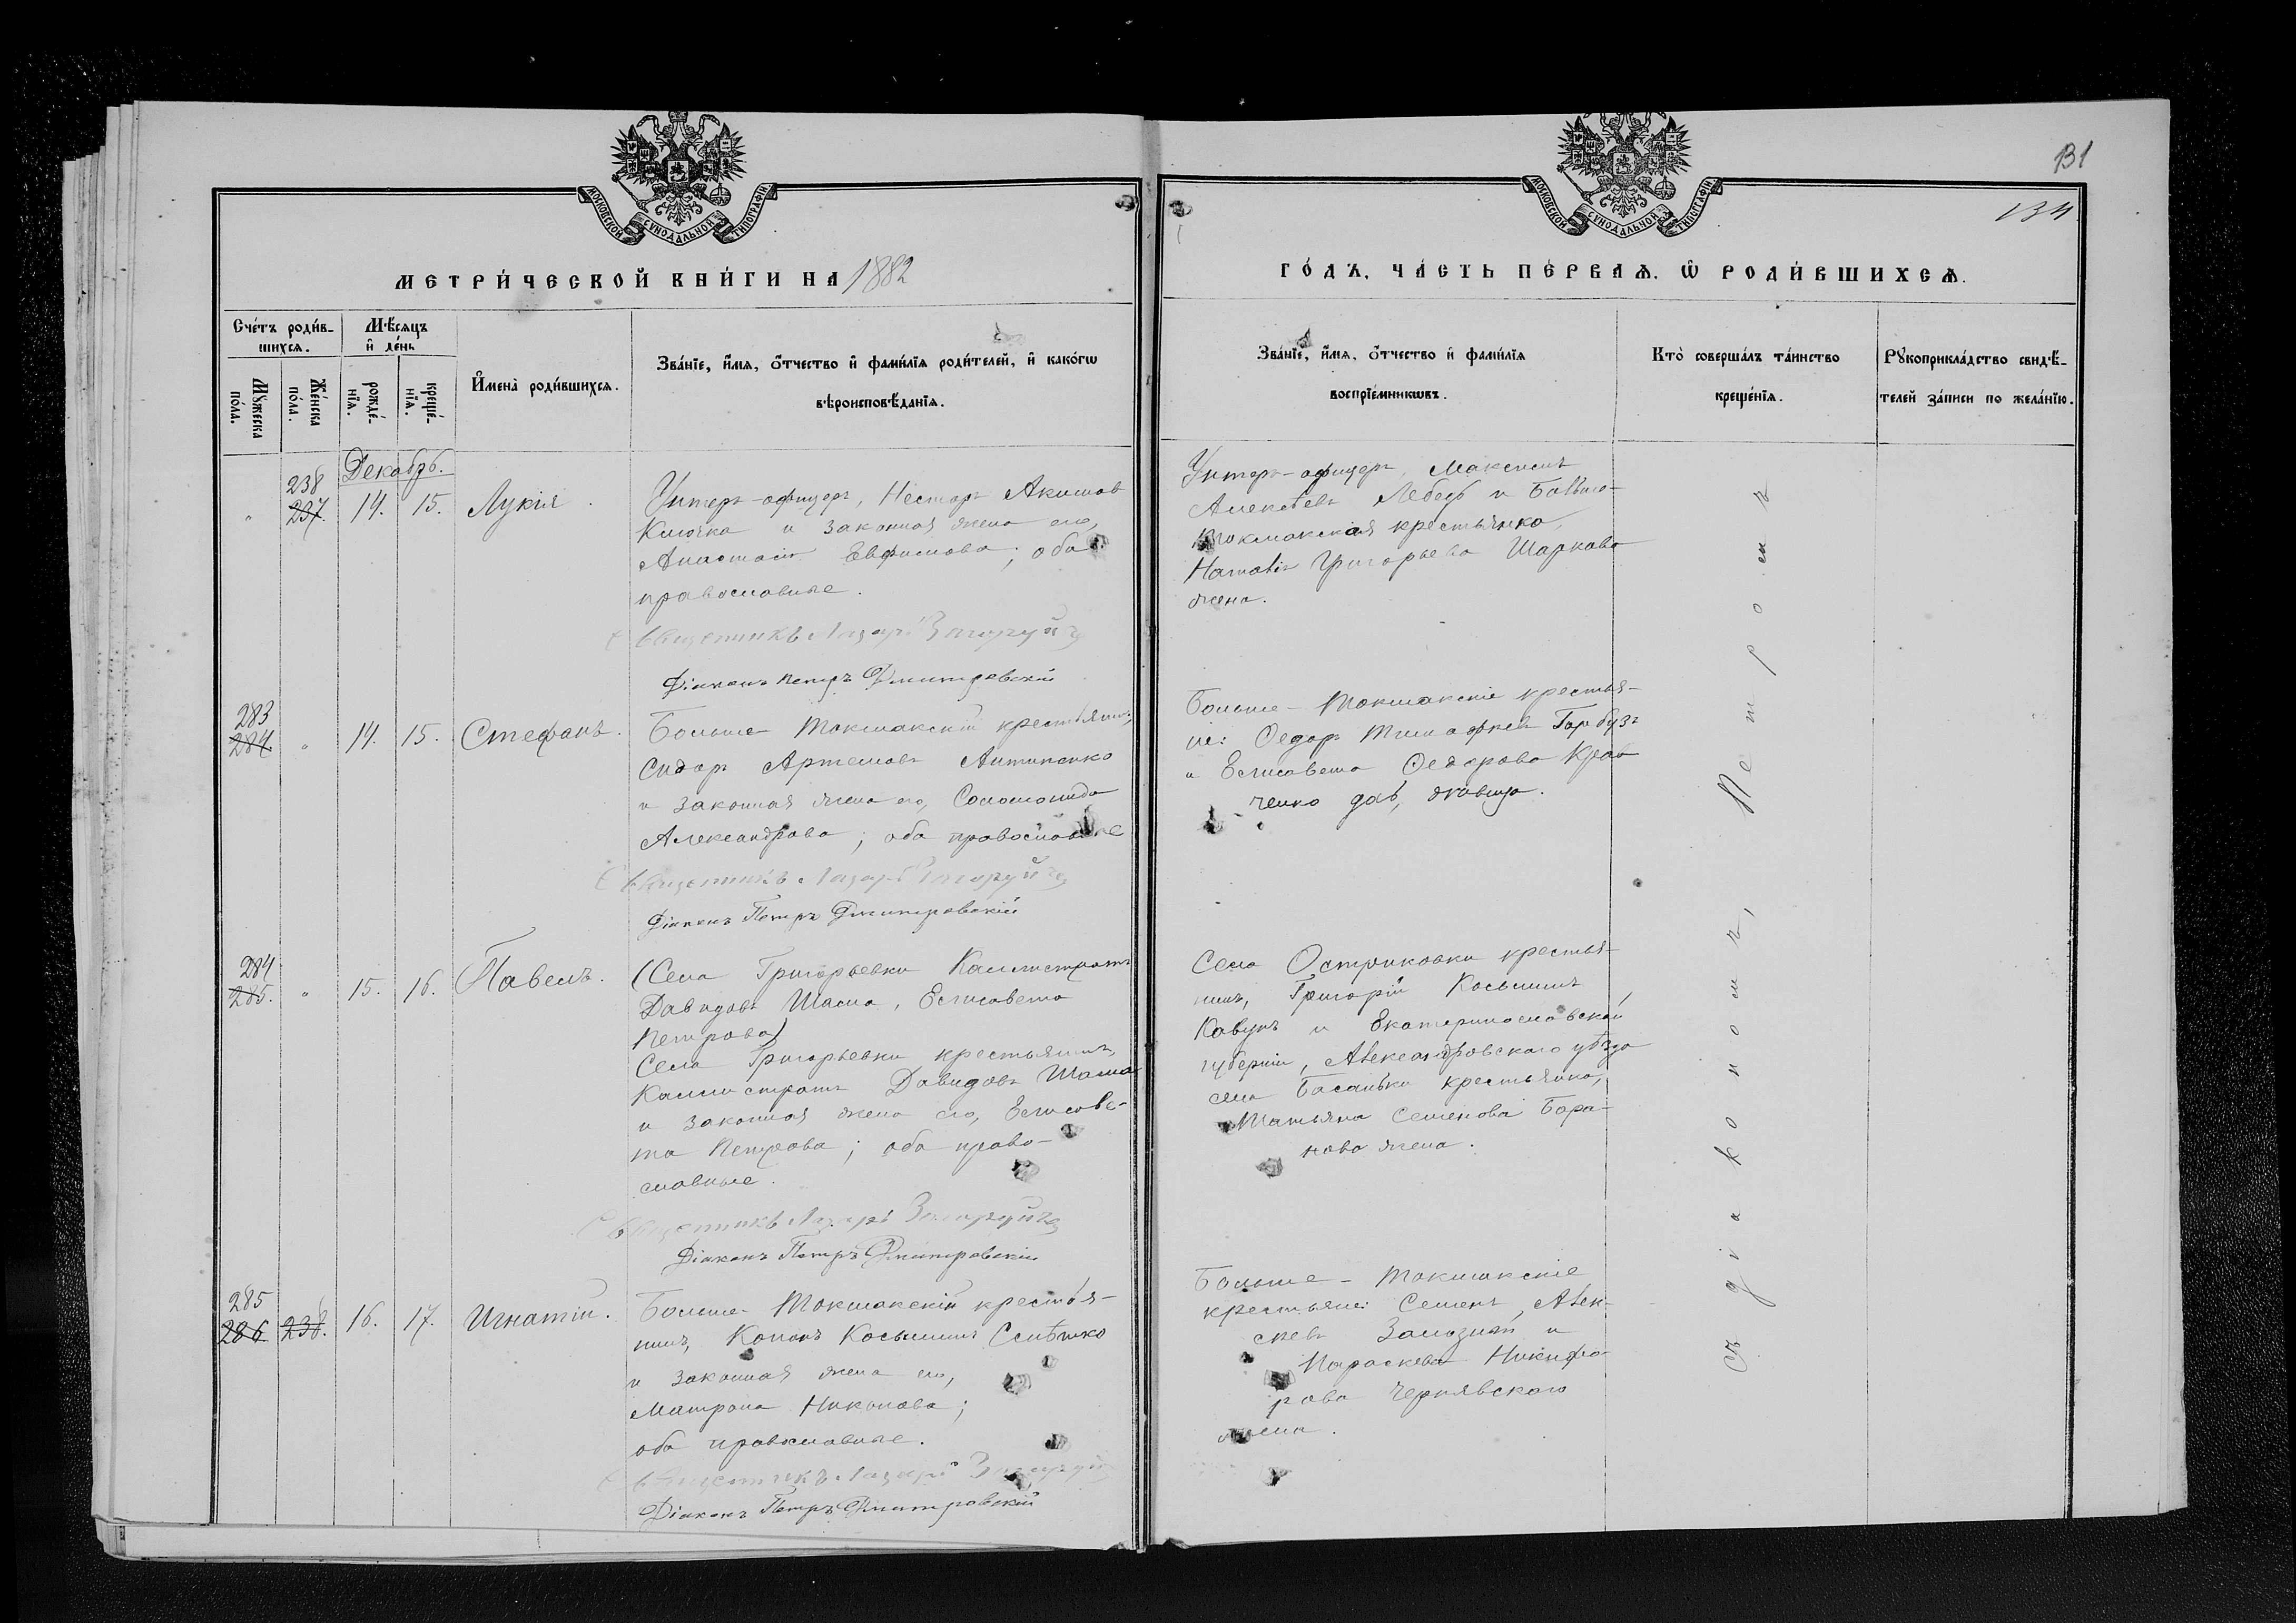 131
134
МОСКОВСКОЙ СѴНОДАЛЬНОЙ ТИПОГРАФІИ
МОСКОВСКОЙ СѴНОДАЛЬНОЙ ТИПОГРАФІИ
МЕТРИ́ЧЕСКОЙ КНИ́ГИ НА 1882
ГО́ДЪ, ЧА́СТЬ ПЕ́РВАЯ, Ѡ РОДИ́ВШИХСЯ.
Сче́тъ роди́в-
шихся.
Мѣ́сяцъ
и҆ де́нь
Мꙋ́жеска
по́ла.
Же́нска
по́ла.
рожде́-
нїя.
креще́-
нїя.
И҆мена̀ роди́вшихся.
Зва́нїе, и҆́мя, ѻ҆́тчество и҆ фами́лїя роди́телей, и҆ како́гѡ
вѣроисповѣ́данїя.
Зва́нїе, и҆́мя, ѻ҆́тчество и҆ фами́лїя
воспрїе́мникѡвъ.
Кто̀ соверша́лъ та́инство
креще́нїя.
Рꙋкоприкла́дство свидѣ́-
телей за́писи по жела́нїю.
Декабрь.
238
" 237. 14. 15. Лукія.
Унтеръ-офицеръ, Несторъ Акимов
Клочка и законная жена его,
Анастасія Евфимова; оба
православные.
Священникъ Лазарь Загоруйч
Діаконъ Петръ Дмитровскій
Унтеръ-офицеръ, Максимъ
Алексѣевъ Лебедь и Больше-
Токмакская крестьянка,
Наталія Григорьева Шаркава
жена.
283
284. " 14. 15. Стефанъ.
Больше Токмакскій крестьянинъ,
Сидоръ Артемовъ Антипенко
и законная жена его, Соломонида
Александрова; оба православные
Священникъ Лазарь Загоруйч
Діаконъ Петръ Дмитровскій
Больше-Токмакскіе крестья-
не: Ѳедоръ Тимофеевъ Гарбузъ
и Елисавета Ѳедорова Крав
ченко дѣв,
284
285. " 15. 16. Павелъ.
(Села Григорьевки Каллистратъ
Давидовъ Шама, Елисавета
Петрова)
Села Григорьевки крестьянинъ,
Каллистратъ Давидовъ Шама
и законная жена его, Елисаве-
та Петрова; оба право-
славные.
Священникъ Лазарь Загоруйч
Діаконъ Петръ Дмитровскій
Села Остриковки крестья-
нинъ, Григорій Косьминъ
Кавунъ и Екатеринославской
губерніи, Александровскаго уѣзда
села Басаньки крестьянка,
Татьяна Семенова Бара-
нова жена.
285
286. 238. 16. 17. Игнатій.
Больше-Токмакскій крестья-
нинъ, Кононъ Косьминъ Семѣшко
и законная жена его,
Матрона Никонова;
оба православные.
Священникъ Лазарь Загоруйч
Діаконъ Петръ Дмитровскій
Больше-Токмакскіе
крестьяне: Семенъ Алек-
сѣевъ Замозный и
Параскева Никифо-
рова Чернявскаго
жена.
съ діакономъ, Петромъ